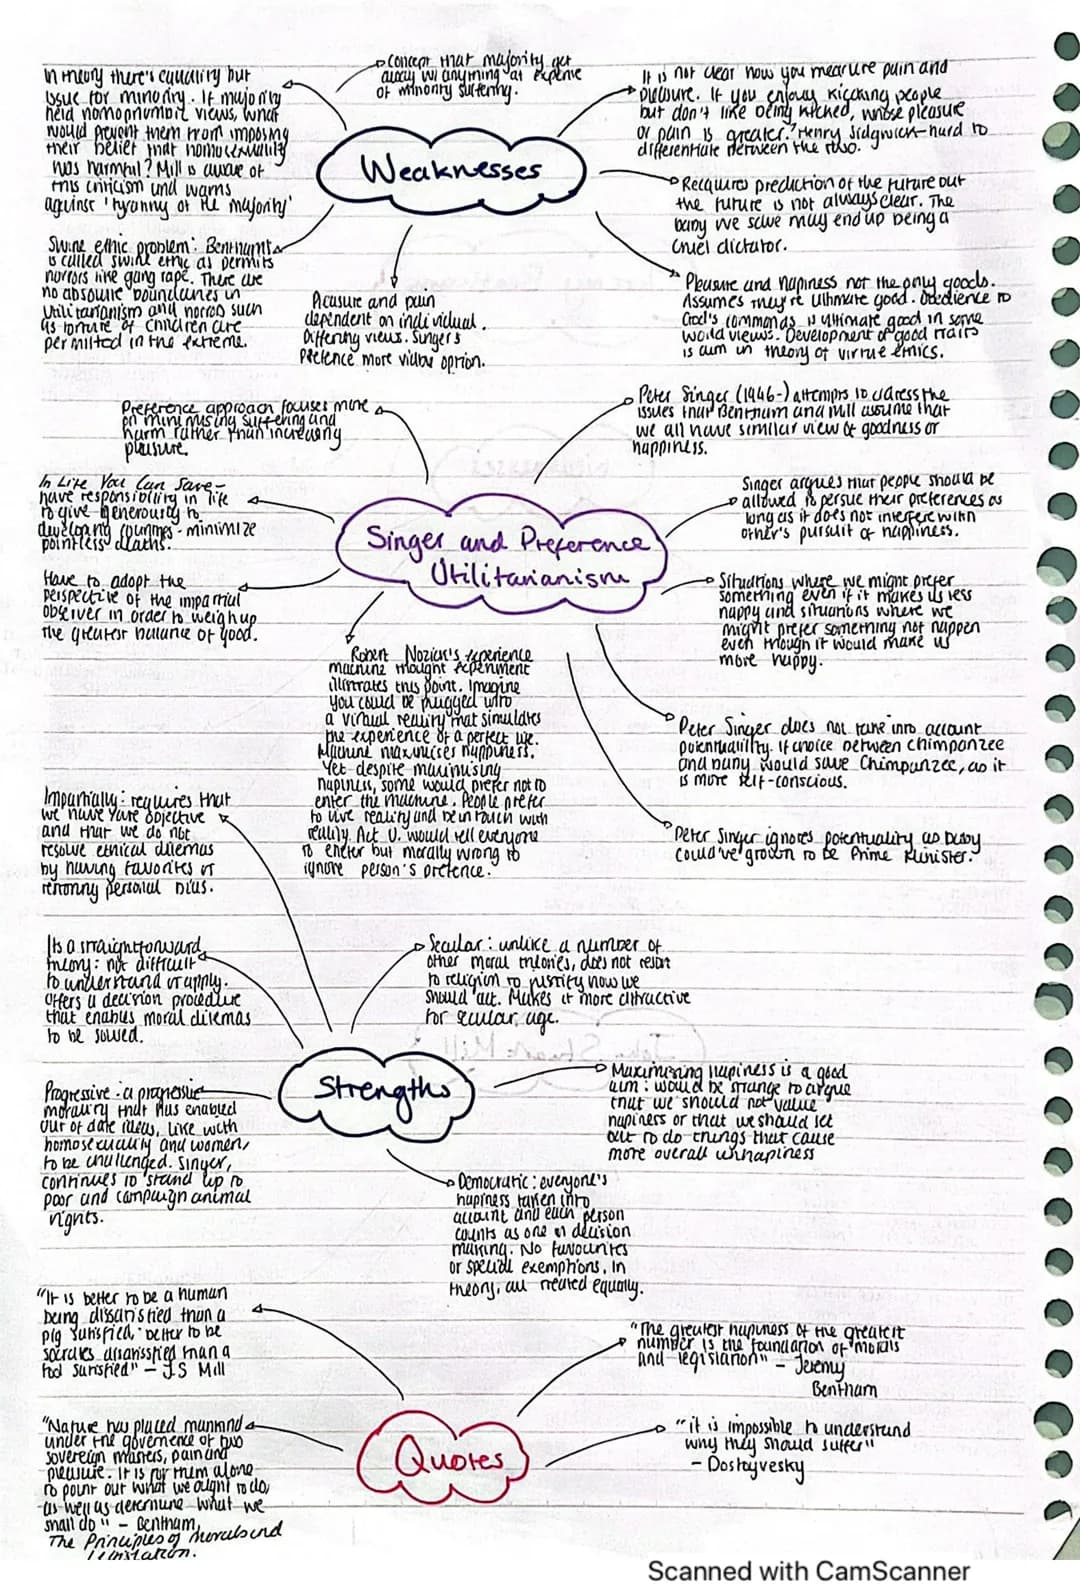 In theory there's equality but
issue for minority. If majority
held homophobic views, what
would prevent them from imposing
their belief that homosexuality
was harmful? Mill is aware of
this criticism and warns
against 'tyranny of the majority'
Concept that majority get
away w/ anything at expense
of minority suffering.
It is not clear how you measure pain and
pleasure. If you enjoy kicking people
but don't like being kicked, whose pleasure
or pain is greater? Henry Sidgwick - hard to
differentiate between the two.
Weaknesses
Requires prediction of the future but
the future is not always clear. The
baby we save may end up being a
cruel dictator.
Swine ethic problem: Bentham's
is called swine ethic as permits
horrors like gang rape. There are
no absolute boundaries in
Utilitarianism and horros such
as torture of children are
permitted in the extreme.
Pleasure and pain
dependent on individual.
Differing views. Singer's
Prefence more viable option.
Pleasure and happiness not the only goods.
Assumes they're ultimate good. Obedience to
God's commands is ultimate good in some
world views. Development of good traits
is aim in theory of virtue ethics.
Preference approach focuses more
on minimising suffering and
harm rather than increasing
pleasure.
Peter Singer (1946-) attempts to adress the
issues that Bentham and Mill assume that
we all have similar view of goodness or
happiness.
In Life You Can Save -
have responsibility in life
to give generously to
developing countries - minimize
pointless deaths.
Singer argues that people should be
allowed to persue their preferences as
long as it does not interfere with
other's pursuit of happiness.
Singer and Preference
Utilitarianism
Have to adopt the
perspective of the impartial
observer in order to weigh up
the greater balance of good.
Situations where we might prefer
something even if it makes us less
happy and situations where we
might prefer something not happen
even though it would make us
more happy.
Robert Nozick's experience
machine thought experiment
illustrates this point. Imagine
you could be plugged into
a virtual reality that simulates
the experience of a perfect life.
Machine maximises happiness.
Yet despite maximising
hapiness, some would prefer not to
enter the machine. People prefer
to live reality and be in touch with
reality. Act U. would tell everyone
to eneter but morally wrong to
ignore person's prefence.
Peter Singer does not take into account
potentuality. If choice between chimpanzee
and baby would save Chimpanzee, as it
is more self-conscious.
Peter Singer ignores potentuality as baby
could've grown to be Prime Minister.
Impartially: requires that
we have objective
and that we do not
resolve ethical dilemas
by having favorites or
personal bias.
Its a straightforward
theory: not difficult
to understand or apply.
Offers a decision procedure
that enables moral dilemas
to be solved.
Secular: unlike a number of
other moral theories, does not resort
to religion to justify how we
should act. Makes it more attractive
for secular age.
Strengths
Maximising happiness is a good
aim: would be strange to argue
that we should not value
hapiness or that we should set
out to do things that cause
more overall unhapiness
Progressive: a progressive
morality that has enabled
out of date ideas, like with
homosexuality and women,
to be challenged. Singer,
continues to stand up to
poor and campaign animal
rights.
Democratic: everyone's
hapiness taken into
account and each person
counts as one in decision
making. No favourites
or special exemptions. In
theory, all treated equally.
"It is better to be a human
being dissatisfied than a
pig satisfied; better to be
socrates dissatisfied than a
fool satisfied" - J.S Mill
"The greatest hapiness of the greatest
number is the foundation of morals
and legislation" - Jeremy
Bentham
Quotes
"Nature has placed mankind
under the governence of two
sovereign masters, pain and
pleasure. It is for them alone
to point out what we ought to do,
as well as determine what we
shall do" - Bentham,
The Principles of Morals and
Legislation.
"it is impossible to understand
why they should suffer"
- Dostoyvesky
Scanned with CamScanner